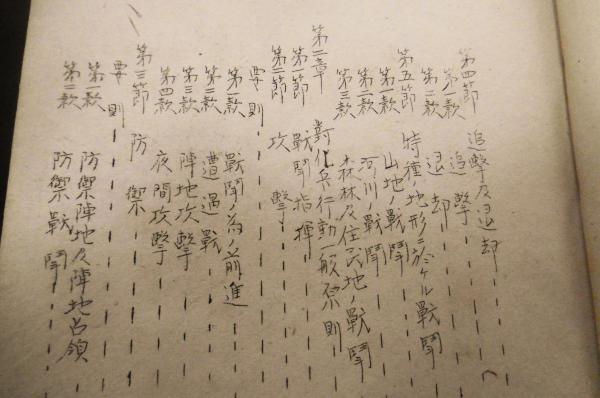 第四節 追擊及退却
第一款 追擊
第二款 退却
第五節 特種ノ地形ニ於ケル戰鬪
第一款 山地ノ戰鬪
第二款 河川ノ戰鬪
第三款 森林及住民地ノ戰鬪
第二章 對化兵行動一般原則
第一節 戰鬪指揮
第二節 攻擊
要則
第一款 戰鬪ノ為ノ前進
第二款 遭遇戰
第三款 陣地攻擊
第四款 夜間攻擊
第三節 防禦
要則
第一款 防禦陣地及陣地占領
第二款 防禦戰鬪